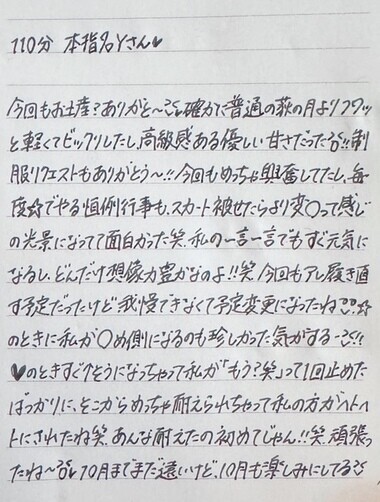 110分 本指名Yさん♥
今回もお土産?ありがと〜!!確かに普通の萩の月よりフワッ
と軽くてビックリしたし、高級感ある優しい甘さだった!!制
服リクエストもありがとう〜!!今回もめっちゃ興奮してたし、毎
度☆でやる恒例行事も、スカート被せたらより変〇って感じ
の光景になってて面白かった笑 私の一言一言でもすぐ元気に
なるし、どんだけ想像力豊かなのよ!!笑 今回もアレ履き直
す予定だったけど我慢できなくて予定変更になったね☆
のときに私が〇め側になるのも珍しかった気がする〜!!
♥のときすぐイきそうになっちゃって私が「もう?笑」って1回止めた
ばっかりに、そこからめっちゃ耐えられちゃって私の方がヘト
トにされたね笑 あんな耐えたの初めてじゃん!!笑 頑張っ
たね〜 10月までまだ遠いけど、10月も楽しみにしてる